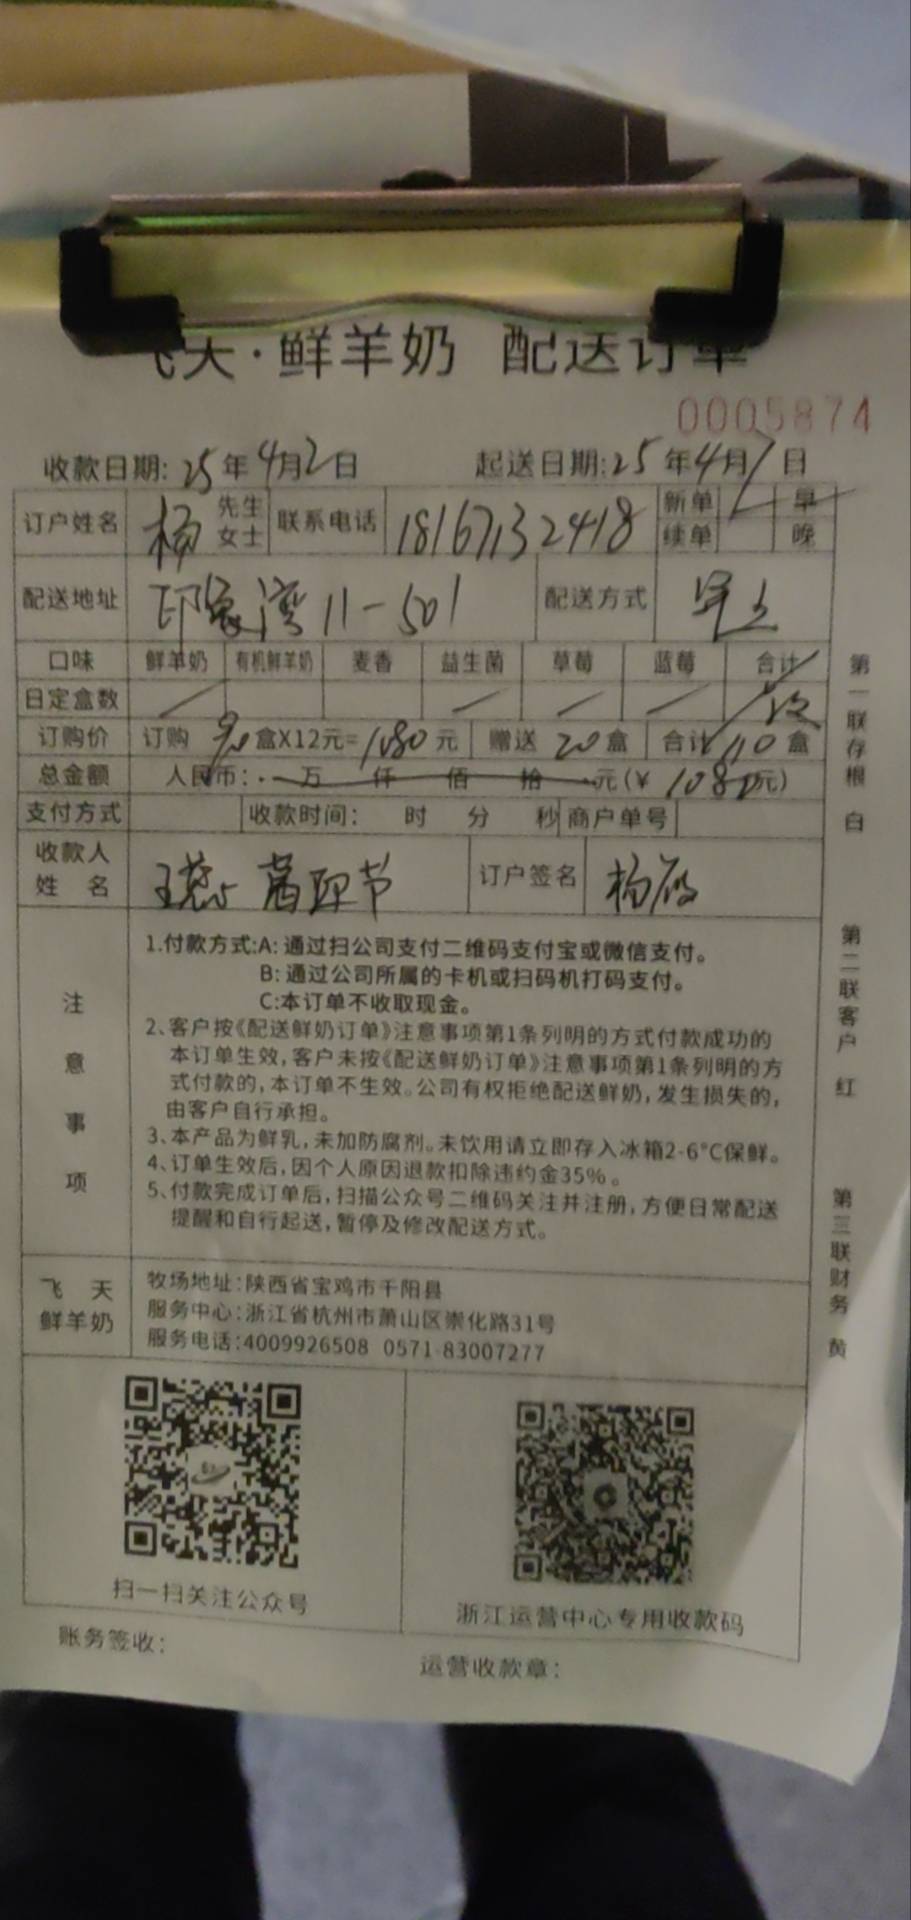 飞天·鲜羊奶 配送订单
0005874
收款日期: 25年4月2日 起送日期: 25年4月7日
订户姓名 杨 先生 女士 联系电话 18167132418 新单 早 续单 晚
配送地址 印象湾11-501 配送方式 早上
口味 鲜羊奶 有机鲜羊奶 麦香 益生菌 草莓 蓝莓 合计
日定盒数
订购价 订购 90盒X12元=1080元 赠送 20盒 合计 110盒
总金额 人民币: 万 仟 佰 拾 元(¥ 1080元)
支付方式 收款时间: 时 分 秒 商户单号
收款人姓名 订户签名 杨
注意事项
1.付款方式:A: 通过扫公司支付二维码支付宝或微信支付。
B: 通过公司所属的卡机或扫码机打码支付。
C:本订单不收取现金。
2、客户按《配送鲜奶订单》注意事项第1条列明的方式付款成功的
本订单生效, 客户未按《配送鲜奶订单》注意事项第1条列明的方
式付款的, 本订单不生效。公司有权拒绝配送鲜奶, 发生损失的,
由客户自行承担。
3、本产品为鲜乳, 未加防腐剂。未饮用请立即存入冰箱2-6°C保鲜。
4、订单生效后, 因个人原因退款扣除违约金35%。
5、付款完成订单后, 扫描公众号二维码关注并注册, 方便日常配送
提醒和自行起送, 暂停及修改配送方式。
飞天
鲜羊奶
牧场地址: 陕西省宝鸡市千阳县
服务中心: 浙江省杭州市萧山区崇化路31号
服务电话: 4009926508 0571-83007277
扫一扫关注公众号
浙江运营中心专用收款码
账务签收:
运营收款章:
第一联存根 白
第二联客户 红
第三联财务 黄